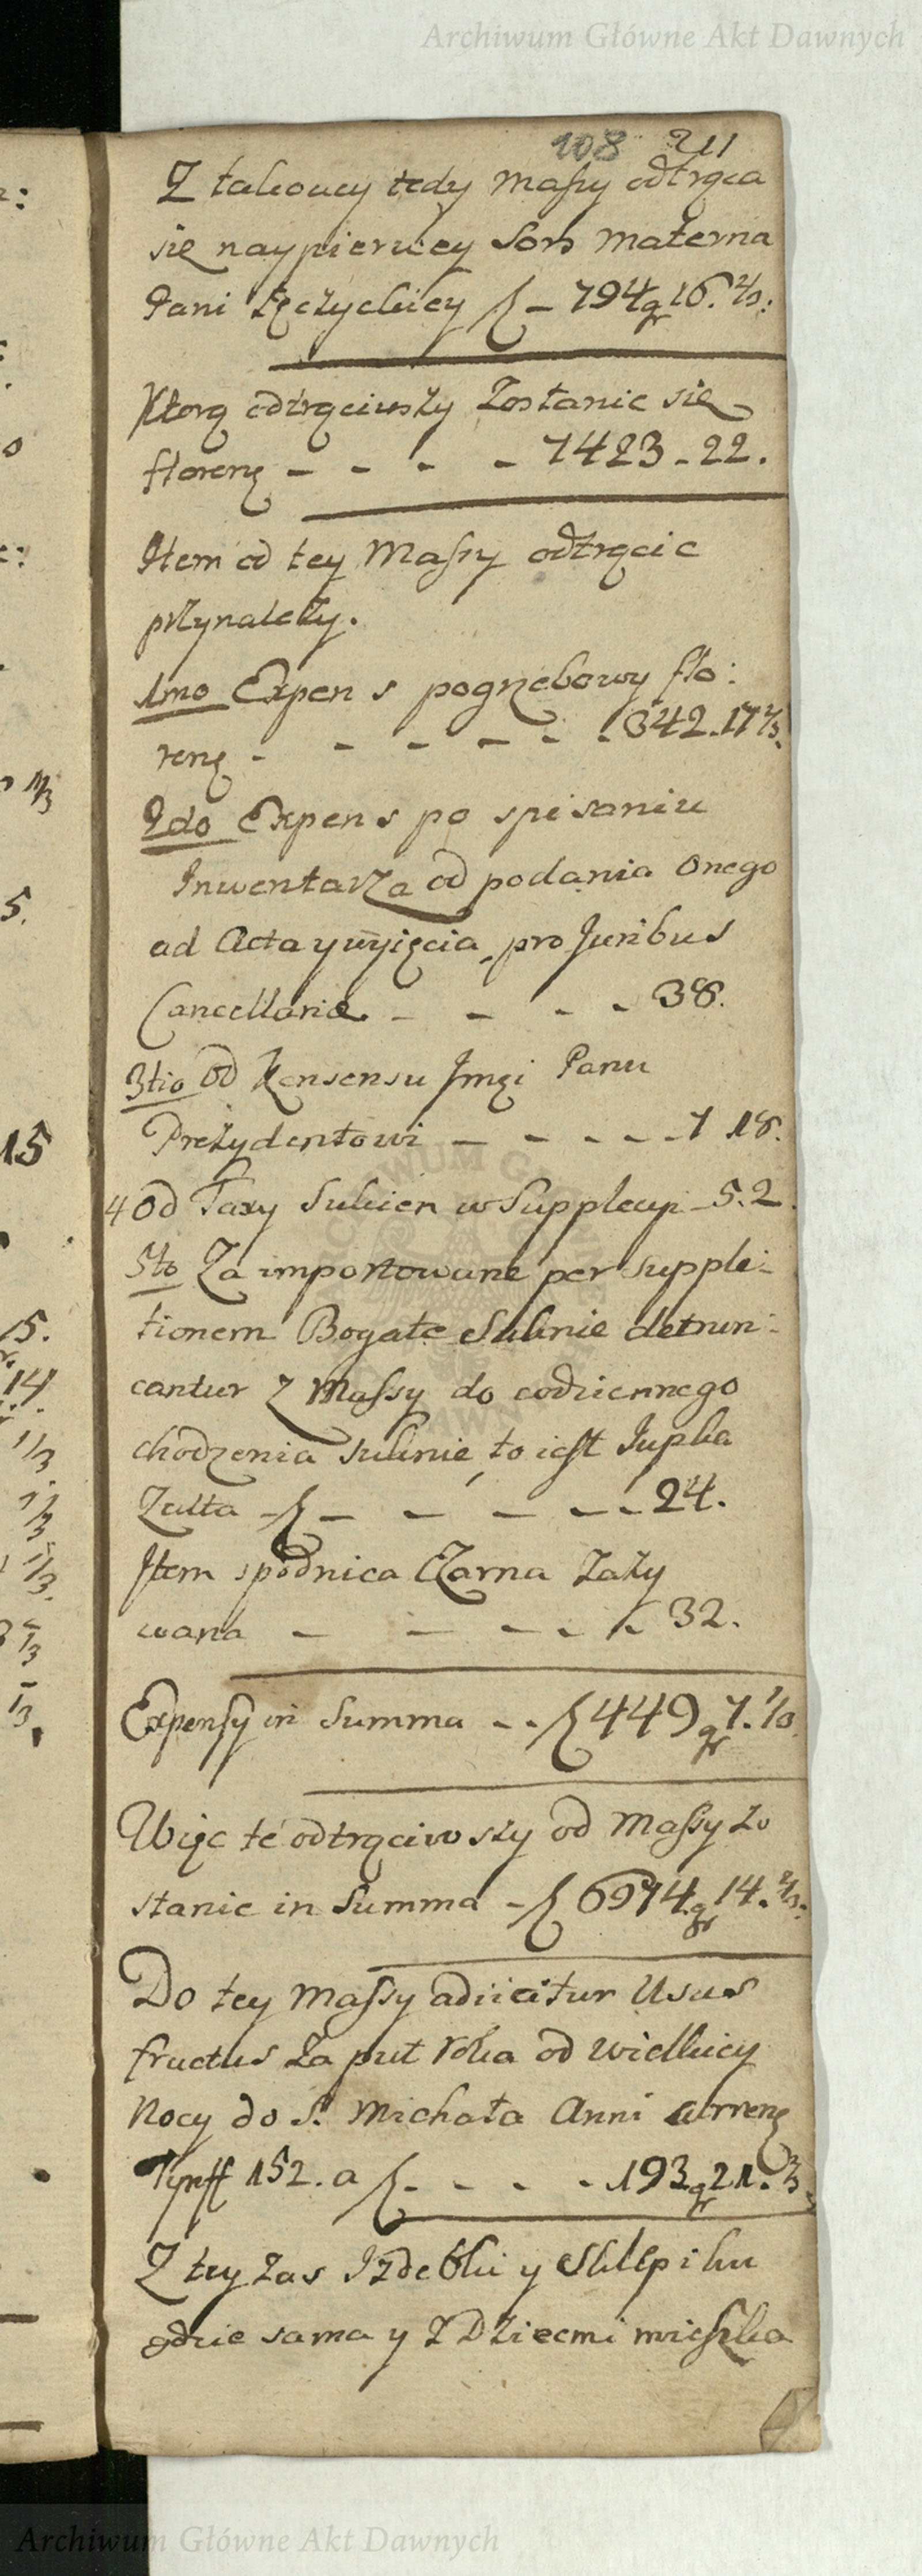 Archiwum Główne Akt Dawnych
108 211
Z takowey tedy Massy odtrąca
się naypierwey Sors Materna
Pani Łęczyckiey f – 794 gr 16. 2/3:
Ktorą odtrąciwszy Zostanie się
florenę – – – – 7423 – 22.
Item od tey Massy odtrącic
przynależy.
1mo Expens pogrzebowy flo:
renę – – – – – – 342. 17 2/3.
2do Expens po spisaniu
Inwentarza od podania onego
ad Acta y wyięcia pro Juribus
Cancellariæ – – – – 38.
3tio Od Konsensu Jmci Panu
Prezydentowi – – – – – 7 18.
4 Od Taxy Sukien w Supplecyi – 5. 2.
5to Za importowane per supple:
tionem Bogate Suknie detrun:
cantur z Massy do codziennego
chodzenia suknie, to iest Jupka
Zułta – f – – – – – 24.
Item spodnica Czarna zaży
wana – – – – – 32.
Expensy in Summa – – f 449 gr 7. 1/3
Więc te odtrąciwszy od Massy zo
stanie in Summa – f 6974 gr 14. 2/3:
Do tey Massy adiicitur Usus
fructus za puł roka od Wielkiey
Nocy do S. Michała Anni currenę
Tynff 152. a f – – – – 193 gr 21. 2/3
Z tey zas Izdebki y Sklepiku
gdzie sama y z Dziecmi mieszka
Archiwum Główne Akt Dawnych